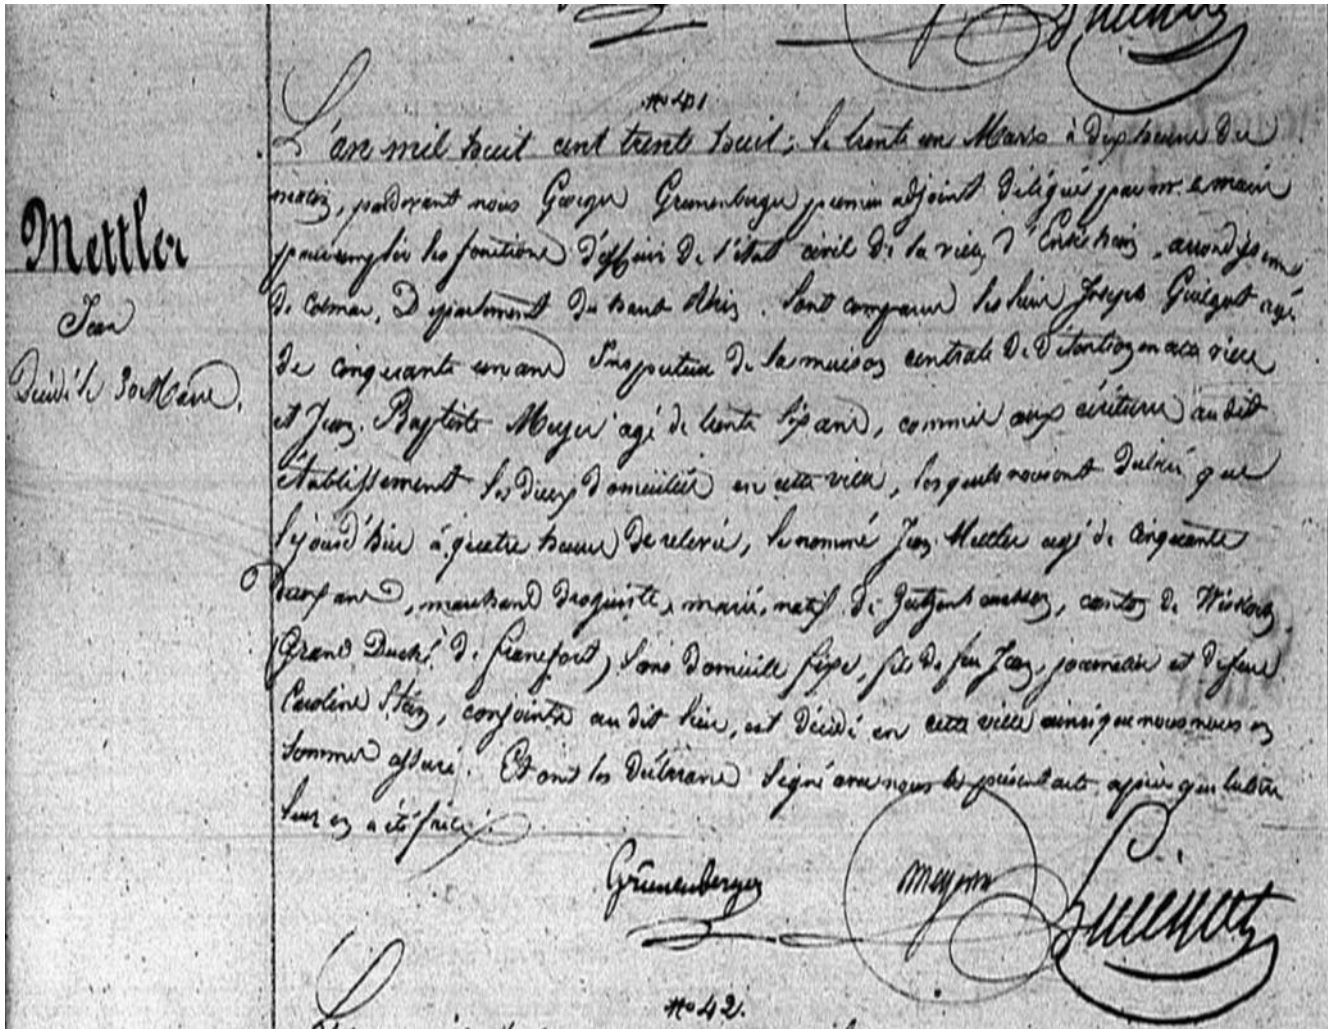 No 41
L'an mil huit cent trente huit, le trente un Mars à dix heures du
matin, pardevant nous George Grunenberger premier adjoint délégué par mr. le maire
pour remplir les fonctions d'officier de l'état civil de la ville d'Ensisheim, arrondissem
de Colmar, Département du haut Rhin. Sont comparus les sieurs Joseph agé
de cinquante un ans Inspecteur de la maison centrale de Détention en cette ville
et Jean Baptiste Meyer agé de trente six ans, commis aux écritures au dit
établissement les deux domiciliés en cette ville, lesquels nous ont déclaré que
à quatre heures de relevée, le nommé Jean Mettler agé de cinquante
ans, marchand droguiste, marié, natif de canton de
Grand Duché de francfort, sans domicile fixe, fils de feu Jean, journalier et de feue
Caroline Stein, conjointe au dit lieu, est décédé en cette ville ainsi que nous nous en
sommes assuré. Et ont les déclarans signé avec nous le présent acte après que lecture
leur en a été faite.
Mettler
Jean
Décédé le 30 Mars.
Grunenberger Meyer
No 42.